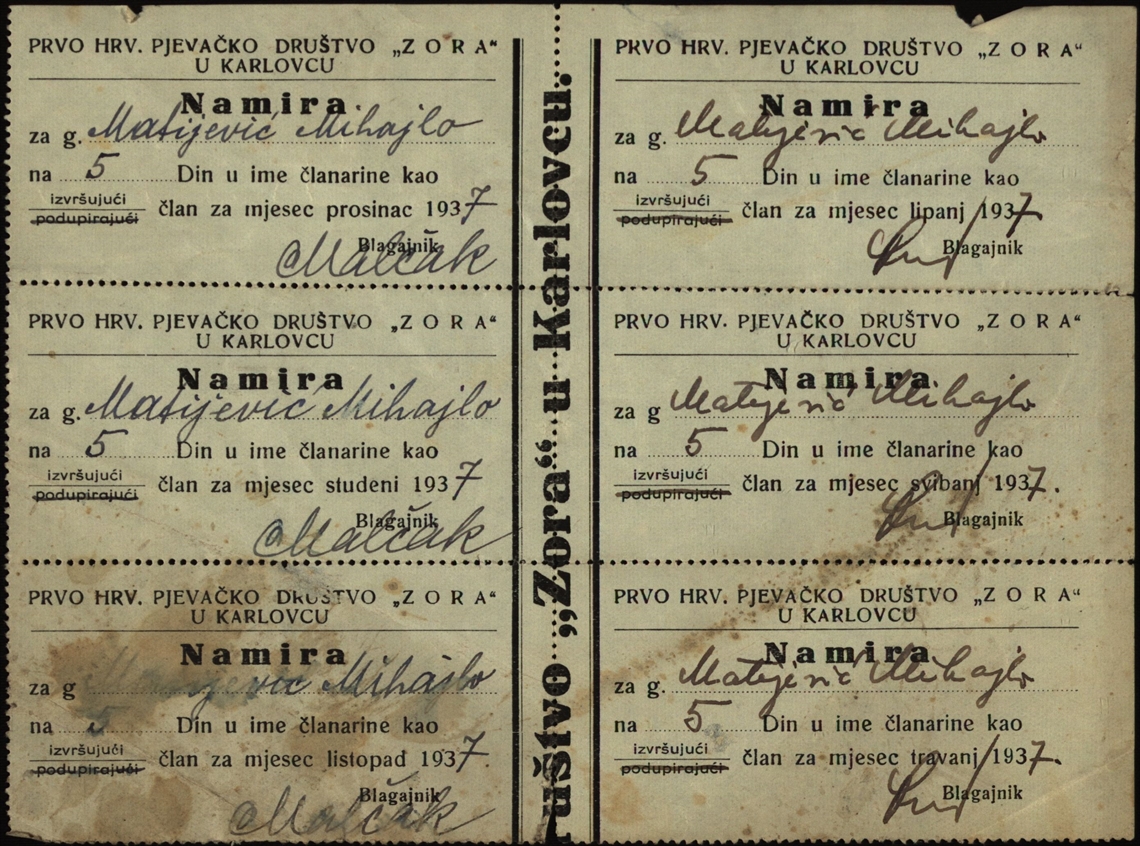 PRVO HRV. PJEVAČKO DRUŠTVO „Z O R A“
U KARLOVCU
Namira
za g. Matijević Mihajlo
na 5 Din u ime članarine kao
izvršujući
podupirajući
član za mjesec prosinac 1937
Blagajnik
Malčák
PRVO HRV. PJEVAČKO DRUŠTVO „Z O R A“
U KARLOVCU
Namira
za g. Matijević Mihajlo
na 5 Din u ime članarine kao
izvršujući
podupirajući
član za mjesec studeni 1937
Blagajnik
Malčák
PRVO HRV. PJEVAČKO DRUŠTVO „Z O R A“
U KARLOVCU
Namira
za g Matijević Mihajlo
na 5 Din u ime članarine kao
izvršujući
podupirajući
član za mjesec listopad 1937.
Blagajnik
Malčák
ruštvo „Zora“ u Karlovcu.
PRVO HRV. PJEVAČKO DRUŠTVO „Z O R A“
U KARLOVCU
Namira
za g. Matijević Mihajlo
na 5 Din u ime članarine kao
izvršujući
podupirajući
član za mjesec lipanj 1937.
Blagajnik
PRVO HRV. PJEVAČKO DRUŠTVO „Z O R A“
U KARLOVCU
Namira
za g Matijević Mihajlo
na 5 Din u ime članarine kao
izvršujući
podupirajući
član za mjesec svibanj 1937.
Blagajnik
PRVO HRV. PJEVAČKO DRUŠTVO „Z O R A“
U KARLOVCU
Namira
za g. Matijević Mihajlo
na 5 Din u ime članarine kao
izvršujući
podupirajući
član za mjesec travanj 1937.
Blagajnik